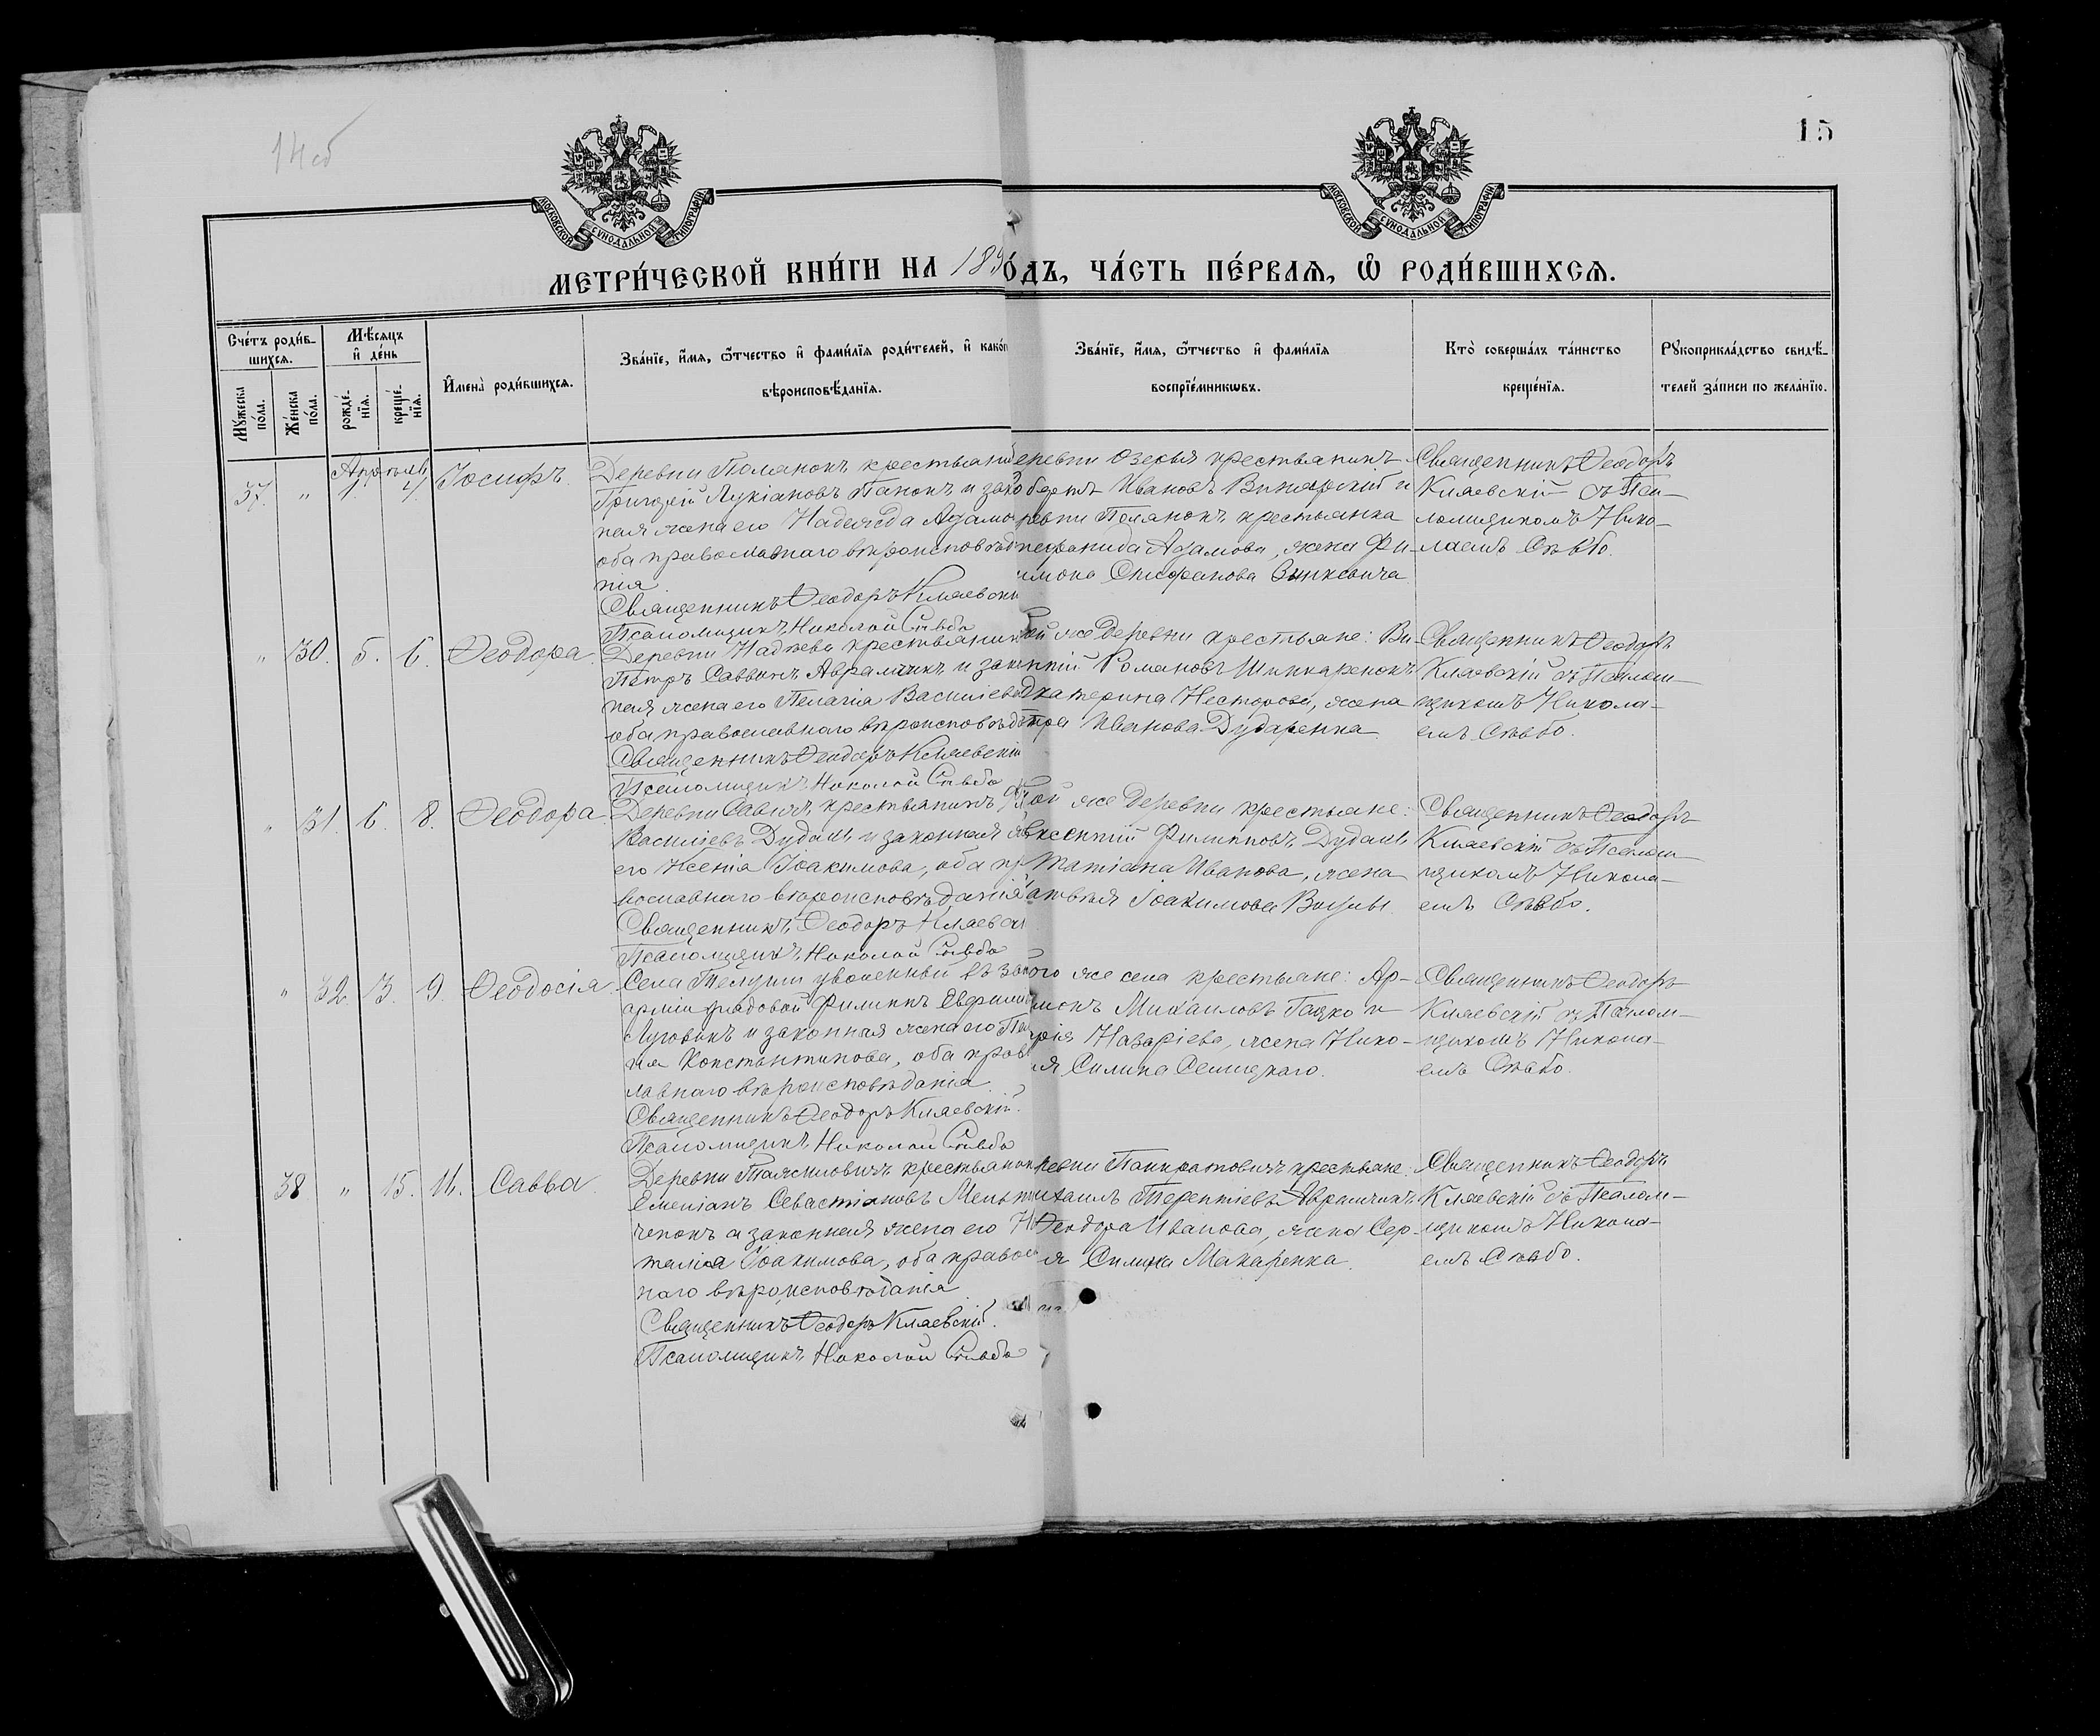 14 об
15
МОСКОВСКОЙ СУНОДАЛЬНОЙ ТИПОГРАФІИ
МОСКОВСКОЙ СУНОДАЛЬНОЙ ТИПОГРАФІИ
МЕТРИ́ЧЕСКОЙ КНИ́ГИ НА 189
О́ДЪ, ЧА́СТЬ ПЕ́РВАѦ, Ѡ҆ РОДИ́ВШИХСѦ.
Сче́тъ роди́в-
шихсѧ.
Мꙋ́жеска по́ла.
Же́нска по́ла.
Мѣ́сѧцъ
и҆ де́нь
рожде́-нїѧ.
креще́-нїѧ.
И҆мена̀ роди́вшихсѧ.
Зва́нїе, и҆́мѧ, ѻ҆́тчество и҆ фами́лїѧ роди́телей, и҆ како́г
вѣроисповѣ́данїѧ.
Зва́нїе, и҆́мѧ, ѻ҆́тчество и҆ фами́лїѧ
воспрїе́мникѡвъ.
Кто̀ соверша́лъ та́инство
креще́нїѧ.
Рꙋкоприкла́дство свидѣ́-
телей за́писи по жела́нїю.
37. " Апрѣль 4 Іосифъ.
Деревни Полянокъ крестьяни
Григорій Лукіановъ Панокъ и зако
ная жена его Надежда Адамо
оба православнаго вѣроисповѣд
нія.
Священникъ Ѳеодоръ Кляевскі
Псаломщикъ Николай Сѣвбо
еревни Озерья крестьянинъ
Ивановъ Винярскій и
ревни Полянокъ крестьянка
Адамова, жена Фи-
имона Стефанова Зинкевича
Священникъ Ѳеодоръ
Кляевскій съ Пса-
ломщикомъ Нико-
лаемъ Сѣвбо.
" 30. 5. 6. Ѳеодора.
Деревни крестьянин
Петръ Саввинъ Аврамчикъ и закон
ная жена его Пелагія Васильева
оба православнаго вѣроисповѣд
Священникъ Ѳеодоръ Кляевскі
Псаломщикъ Николай Сѣвбо
ой же деревни крестьяне: Ви-
Романовъ Шинкаренокъ
Екатерина Несторова, жена
тра Иванова Дударенка
Священникъ Ѳеодоръ
Кляевскій съ Псалом-
щикомъ Никола-
емъ Сѣвбо.
" 31. 6. 8. Ѳеодора.
Деревни Савичъ крестьянинъ
Василіевъ Дудаль и законная
его Ксенія Іоакимова, оба пр
вославнаго вѣроисповѣданія
Священникъ Ѳеодоръ Кляевск
Псаломщикъ Николай Сѣвбо
ой же деревни крестьяне:
Авксентій Филипповъ Дудаль
Татіана Иванова, жена
Іоакимова
Священникъ Ѳеодоръ
Кляевскій съ Псалом-
щикомъ Никола-
емъ Сѣвбо.
" 32. 3. 9. Ѳеодосія.
Села Телуши уволенный въ за
арміи рядовой Филиппъ Евфим
и законная жена его Пел
Константинова, оба прав
лавнаго вѣроисповѣданія
Священникъ Ѳеодоръ Кляевскій.
Псаломщикъ Николай Сѣвбо
ого же села крестьяне: Ар-
Михаиловъ Гацко и
Назаріева, жена Нико-
я Силина Селицкаго.
Священникъ Ѳеодоръ
Кляевскій съ Псалом-
щикомъ Никола-
емъ Сѣвбо.
38 " 15. 16. Савва
Деревни крестьянин
Емеліанъ Севастіановъ
и законная жена его Н
таліа Іоакимова, оба правос
наго вѣроисповѣданія
Священникъ Ѳеодоръ Кляевскій.
Псаломщикъ Николай Сѣвбо
ревни Панкратовичъ крестьяне:
ихаилъ Терентіевъ Аврамчикъ
Ѳеодора Иванова, жена Сер-
я Силина Макаренка.
Священникъ Ѳеодоръ
Кляевскій съ Псалом-
щикомъ Никола-
емъ Сѣвбо.